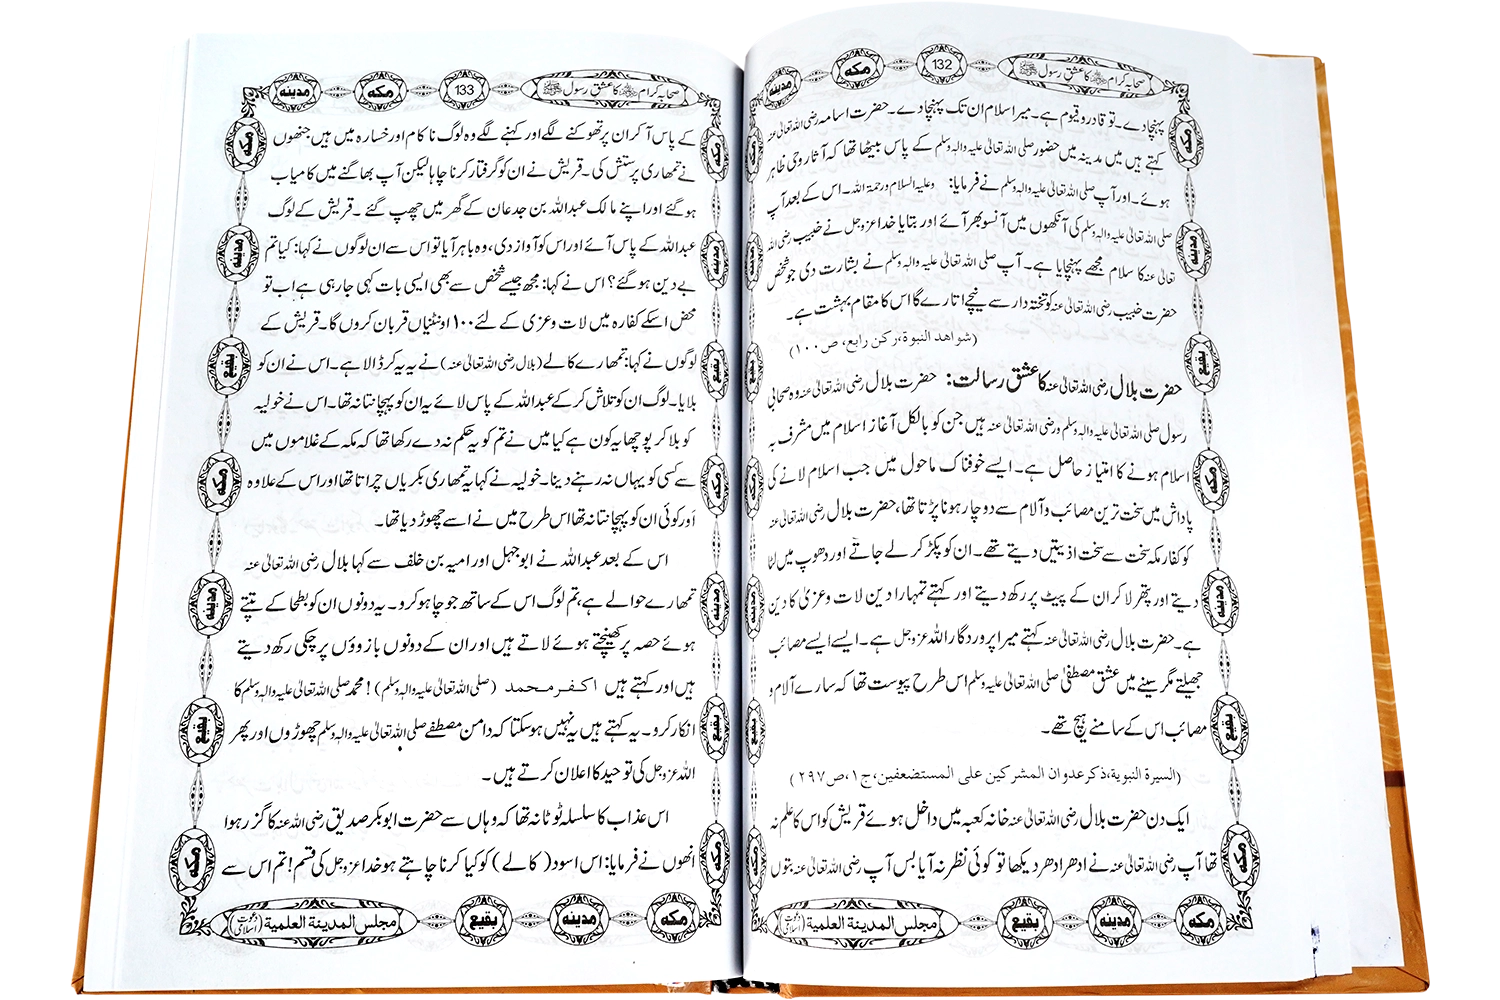 صحابہ کرام کا عشق رسول ﷺ
132
مکہ
مدینہ
پہنچادے۔ تو قادر و قیوم ہے۔ میرا سلام ان تک پہنچادے۔ حضرت اسامہ رضی اللہ تعالیٰ عنہ
کہتے ہیں میں مدینہ میں حضور صلی اللہ تعالیٰ علیہ والہٖ وسلم کے پاس بیٹھا تھا کہ آثار وحی ظاہر
ہوئے۔ اور آپ صلی اللہ تعالیٰ علیہ والہٖ وسلم نے فرمایا: وعلیہ السلام ورحمۃ اللہ۔ اس کے بعد آپ
صلی اللہ تعالیٰ علیہ والہٖ وسلم کی آنکھوں میں آنسو بھر آئے اور بتایا خدا عزوجل نے خبیب رضی اللہ
تعالیٰ عنہ کا سلام مجھے پہنچایا ہے۔ آپ صلی اللہ تعالیٰ علیہ والہٖ وسلم نے بشارت دی جو شخص
حضرت خبیب رضی اللہ تعالیٰ عنہ کو تختہ دار سے نیچے اتارے گا اس کا مقام بہشت ہے۔
(شواھد النبوۃ، رکن رابع، ص ۱۰۰)
حضرت بلال رضی اللہ تعالیٰ عنہ کا عشق رسالت: حضرت بلال رضی اللہ تعالیٰ عنہ وہ صحابی
رسول صلی اللہ تعالیٰ علیہ والہٖ وسلم ورضی اللہ تعالیٰ عنہ ہیں جن کو بالکل آغاز اسلام میں مشرف بہ
اسلام ہونے کا امتیاز حاصل ہے۔ ایسے خوفناک ماحول میں جب اسلام لانے کی
پاداش میں سخت ترین مصائب و آلام سے دوچار ہونا پڑتا تھا، حضرت بلال رضی اللہ تعالیٰ عنہ
کو کفار مکہ سخت سے سخت اذیتیں دیتے تھے۔ ان کو پکڑ کر لے جاتے اور دھوپ میں لٹا
دیتے اور پھر لا کر ان کے پیٹ پر رکھ دیتے اور کہتے تمہارا دین لات وعزیٰ کا دین
ہے۔ حضرت بلال رضی اللہ تعالیٰ عنہ کہتے میرا پروردگار اللہ عزوجل ہے۔ ایسے ایسے مصائب
جھیلتے مگر سینے میں عشق مصطفیٰ صلی اللہ تعالیٰ علیہ والہٖ وسلم اس طرح پیوست تھا کہ سارے آلام و
مصائب اس کے سامنے ہیچ تھے۔
(السیرۃ النبویۃ، ذکر عدوان المشرکین علی المستضعفین، ج ۱، ص ۲۹۷)
ایک دن حضرت بلال رضی اللہ تعالیٰ عنہ خانہ کعبہ میں داخل ہوئے قریش کو اس کا علم نہ
تھا آپ رضی اللہ تعالیٰ عنہ نے ادھر ادھر دیکھا تو کوئی نظر نہ آیا بس آپ رضی اللہ تعالیٰ عنہ بتوں
مکہ
مدینہ
بقیع
مجلس المدینۃ العلمیۃ (دعوت اسلامی)
صحابہ کرام کا عشق رسول ﷺ
133
مکہ
مدینہ
کے پاس آ کر ان پر تھوکنے لگے اور کہنے لگے وہ لوگ ناکام اور خسارہ میں ہیں جنھوں
نے تمھاری پرستش کی۔ قریش نے ان کو گرفتار کرنا چاہا لیکن آپ بھاگنے میں کامیاب
ہوگئے اور اپنے مالک عبداللہ بن جدعان کے گھر میں چھپ گئے۔ قریش کے لوگ
عبداللہ کے پاس آئے اور اس کو آواز دی، وہ باہر آیا تو اس سے ان لوگوں نے کہا: کیا تم
بے دین ہوگئے؟ اس نے کہا: مجھ جیسے شخص سے بھی ایسی بات کہی جارہی ہے اب تو
محض اسکے کفارہ میں لات وعزی کے لئے ۱۰۰ اونٹنیاں قربان کروں گا۔ قریش کے
لوگوں نے کہا: تمھارے کالے (بلال رضی اللہ تعالیٰ عنہ) نے یہ یہ کر ڈالا ہے۔ اس نے ان کو
بلایا۔ لوگ ان کو تلاش کر کے عبداللہ کے پاس لائے یہ ان کو پہچانتا نہ تھا۔ اس نے خولیہ
کو بلا کر پوچھا یہ کون ہے کیا میں نے تم کو یہ حکم نہ دے رکھا تھا کہ مکہ کے غلاموں میں
سے کسی کو یہاں نہ رہنے دینا۔ خولیہ نے کہا یہ تمھاری بکریاں چراتا تھا اور اس کے علاوہ
اور کوئی ان کو پہچانتا نہ تھا اس طرح میں نے اسے چھوڑ دیا تھا۔
اس کے بعد عبداللہ نے ابوجہل اور امیہ بن خلف سے کہا بلال رضی اللہ تعالیٰ عنہ
تمھارے حوالے ہے، تم لوگ اس کے ساتھ جو چاہو کرو۔ یہ دونوں ان کو بطحا کے تپتے
ہوئے حصہ پر کھینچتے ہوئے لاتے ہیں اور ان کے دونوں بازوؤں پر چکی رکھ دیتے
ہیں اور کہتے ہیں اکفر بمحمد (صلی اللہ تعالیٰ علیہ والہٖ وسلم)! محمد صلی اللہ تعالیٰ علیہ والہٖ وسلم کا
انکار کرو۔ یہ کہتے ہیں یہ نہیں ہوسکتا کہ دامن مصطفےٰ صلی اللہ تعالیٰ علیہ والہٖ وسلم چھوڑوں اور پھر
اللہ عزوجل کی توحید کا اعلان کرتے ہیں۔
اس عذاب کا سلسلہ ٹوٹا نہ تھا کہ وہاں سے حضرت ابوبکر صدیق رضی اللہ عنہ کا گزر ہوا
انھوں نے فرمایا: اس اسود (کالے) کو کیا کرنا چاہتے ہو خدا عزوجل کی قسم! تم اس سے
مکہ
مدینہ
بقیع
مجلس المدینۃ العلمیۃ (دعوت اسلامی)